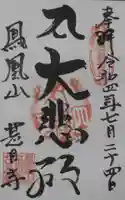 奉拝 令和四年七月二十四日
大悲殿
鳳凰山 甚目寺